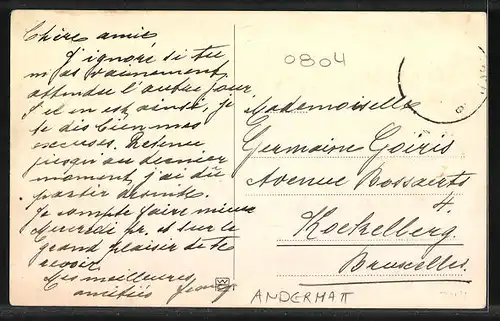 Chère amie
J'ignore si tu
m'as vainement
attendu l'autre jour.
S'il en est ainsi, je
te dis bien mes
excuses. Retenu
jusqu'au dernier
moment, j'ai dû
partir
Je compte faire mieux
Mercredi pr. et sur le
grand plaisir de te
revoir
Mes meilleures
amitiés
0804
Mademoiselle
Germaine Goiris
Avenue Bossaerts
4.
Koekelberg.
Bruxelles.
ANDERMATT